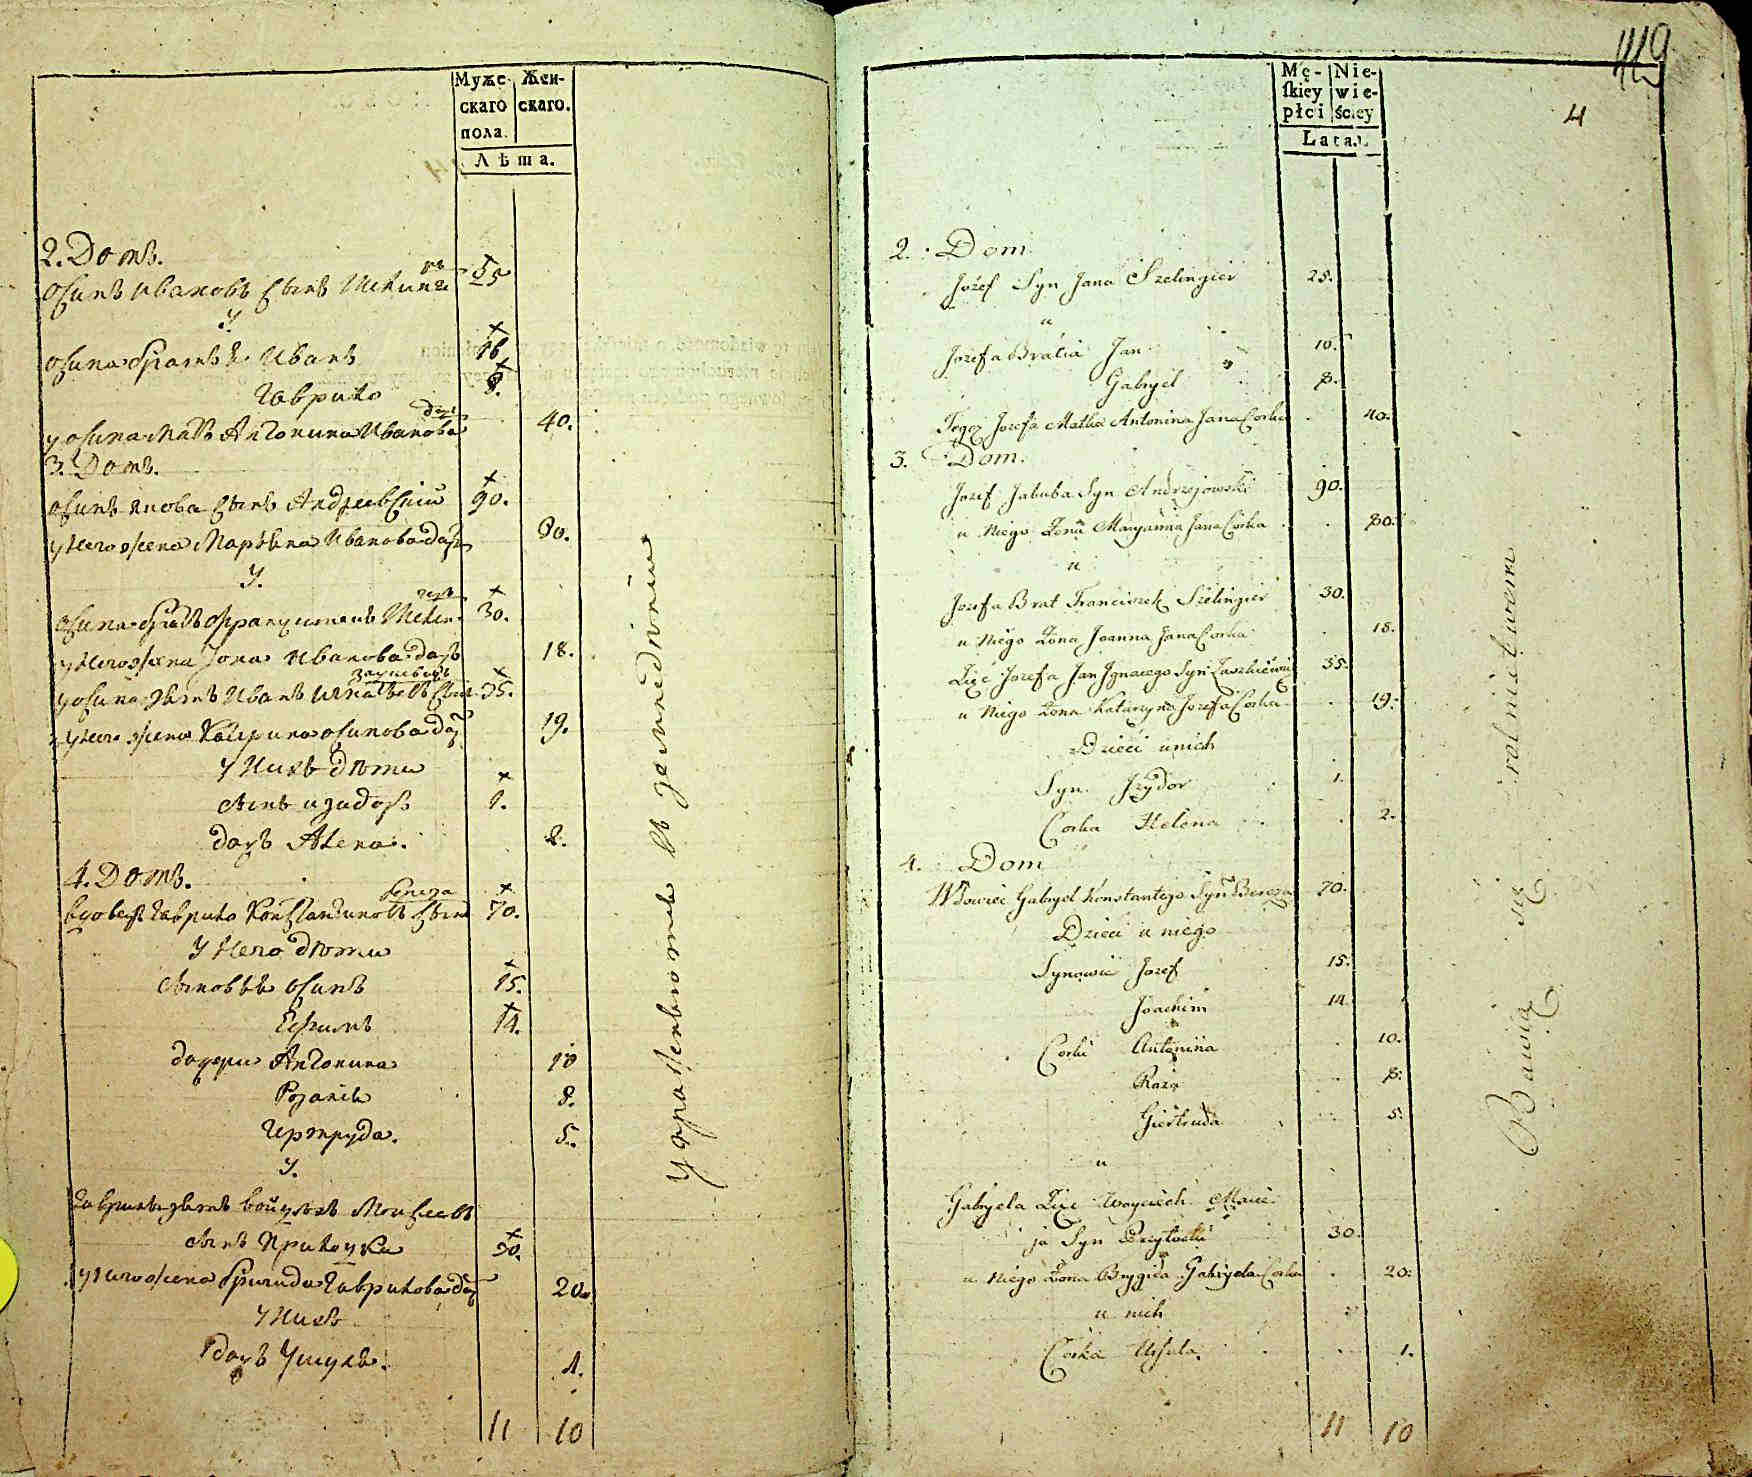 Муже- Жен-
скаго скаго.
пола.
Лѣта.
2. Домъ.
Осипъ Ивановъ сынъ 25
У
Осипа братья Иванъ 16
Гаврило 8.
у Осипа мать Антонина Иванова дочь 40.
3. Домъ.
Осипъ Якова сынъ Андреевский 90.
у него жена Марьяна Иванова дочь 80.
У.
Осипа братъ Францишекъ 30.
у него жена Иванова дочь 18.
у Осипа зять Иванъ Игнатьевъ сынъ 35.
у него жена Катерина Осипова дочь 19.
У нихъ дѣти
сынъ Изидоръ 1.
дочь Алена. 2.
4. Домъ.
Береза
вдовецъ Гаврило Константиновъ сынъ 70.
У него дѣти
сыновья Осипъ 15.
Ефимъ 14.
дочери Антонина 10
Розалія 8.
Гертруда. 5.
У.
Гаврила зять Войцехъ
сынъ 30.
у него жена Бригида Гаврилова дочь 20.
У нихъ
дочь 1.
11 10
Упражненіе въ земледѣліи
449
4
Mę- Nie-
skiey wie-
płci ściey
Lata.
2. Dom.
Józef Syn Jana Szelingier 25.
u
Jozefa Bracia Jan 16.
Gabryel 8.
Tegoż Jozefa Matka Antonina Jana Corka 40.
3. Dom.
Jozef Jakuba Syn Andrzejowski 90.
u Niego Żona Maryanna Jana Corka 80.
u
Jozefa Brat Franciszek Szelingier 30.
u Niego Żona Joanna Jana Corka 18.
Zięć Jozefa Jan Ignacego Syn 35.
u Niego Żona Katarzyna Jozefa Corka 19.
Dzieci u nich
Syn Jzydor 1.
Corka Helena 2.
4. Dom
Wdowiec Gabryel Konstantego Syn Bereza 70.
Dzieci u niego
Synowie Jozef 15.
Joachim 14.
Corki Antonina 10.
Roza 8.
Giertruda 5.
u
Gabryela Zięć Woyciech Macie-
ja Syn Przyłucki 30.
u Niego Żona Brygida Gabryela Corka 20.
u nich
Corka Ursula. 1.
11 10
Bawią się rolnictwem